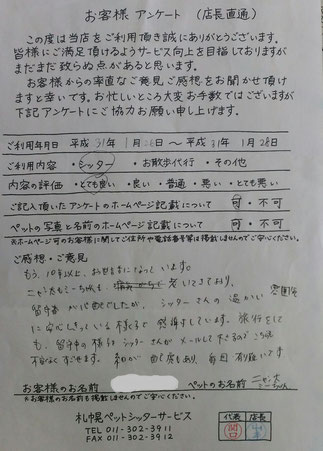 お客様 アンケート (店長直通)
この度は当店をご利用頂き誠にありがとうございます。
皆様にご満足頂けるようサービス向上を目指しておりますが
まだまだ 致らぬ点があると思います。
お客様からの率直なご意見ご感想をお聞かせ頂け
ますと幸いです。お忙しいところ大変お手数ではございますが、
下記アンケートにご協力お願い申し上げます。
ご利用年月日 平成 31年 1月 26日 ～ 平成 31年 1月 28日
ご利用内容 ・シッター ・お散歩代行 ・その他
内容の評価 ・とても良い ・良い ・普通 ・悪い ・とても悪い
ご記入頂いたアンケートのホームページ記載について 可・不可
ペットの写真と名前のホームページ記載について 可・不可
※ホームページ可のお客様に関してご住所や電話番号等は掲載しませんのでご安心ください。
ご感想・ご意見
もう、10年以上、お世話になって います。
も 老いてきており、
留守番 が 心配でしたが、シッター さんの 温かい 雰囲気
に 安心しきっている 様子で 感謝しています。旅行をして
も、留守中の 様子を シッターさんが メールして下さるので こちらも
不安なく すごせます。 毎回 有難いです
お客様のお名前 ペットのお名前
※お客様のお名前も掲載しませんのでご安心ください。
札幌ペットシッターサービス
TEL 011-302-3911
FAX 011-302-3912
代表 店長